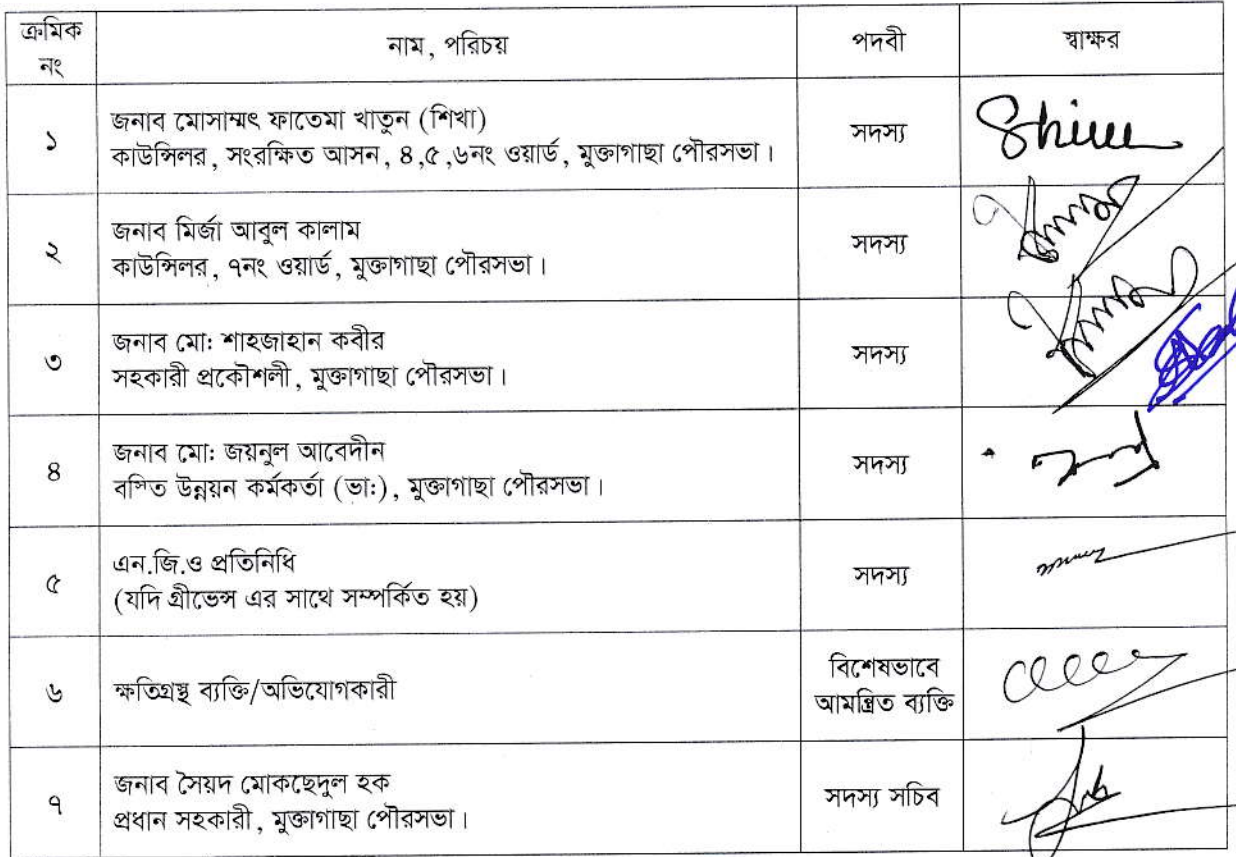 ক্রমিক নং
নাম, পরিচয়
পদবী
স্বাক্ষর
১
জনাব মোসাম্মৎ ফাতেমা খাতুন (শিখা)
কাউন্সিলর, সংরক্ষিত আসন, ৪,৫,৬নং ওয়ার্ড, মুক্তাগাছা পৌরসভা।
সদস্য
২
জনাব মির্জা আবুল কালাম
কাউন্সিলর, ৭নং ওয়ার্ড, মুক্তাগাছা পৌরসভা।
সদস্য
৩
জনাব মো: শাহজাহান কবীর
সহকারী প্রকৌশলী, মুক্তাগাছা পৌরসভা।
সদস্য
৪
জনাব মো: জয়নুল আবেদীন
বস্তি উন্নয়ন কর্মকর্তা (ভা:), মুক্তাগাছা পৌরসভা।
সদস্য
৫
এন.জি.ও প্রতিনিধি
(যদি গ্রীভেন্স এর সাথে সম্পর্কিত হয়)
সদস্য
৬
ক্ষতিগ্রস্থ ব্যক্তি/অভিযোগকারী
বিশেষভাবে
আমন্ত্রিত ব্যক্তি
৭
জনাব সৈয়দ মোকছেদুল হক
প্রধান সহকারী, মুক্তাগাছা পৌরসভা।
সদস্য সচিব